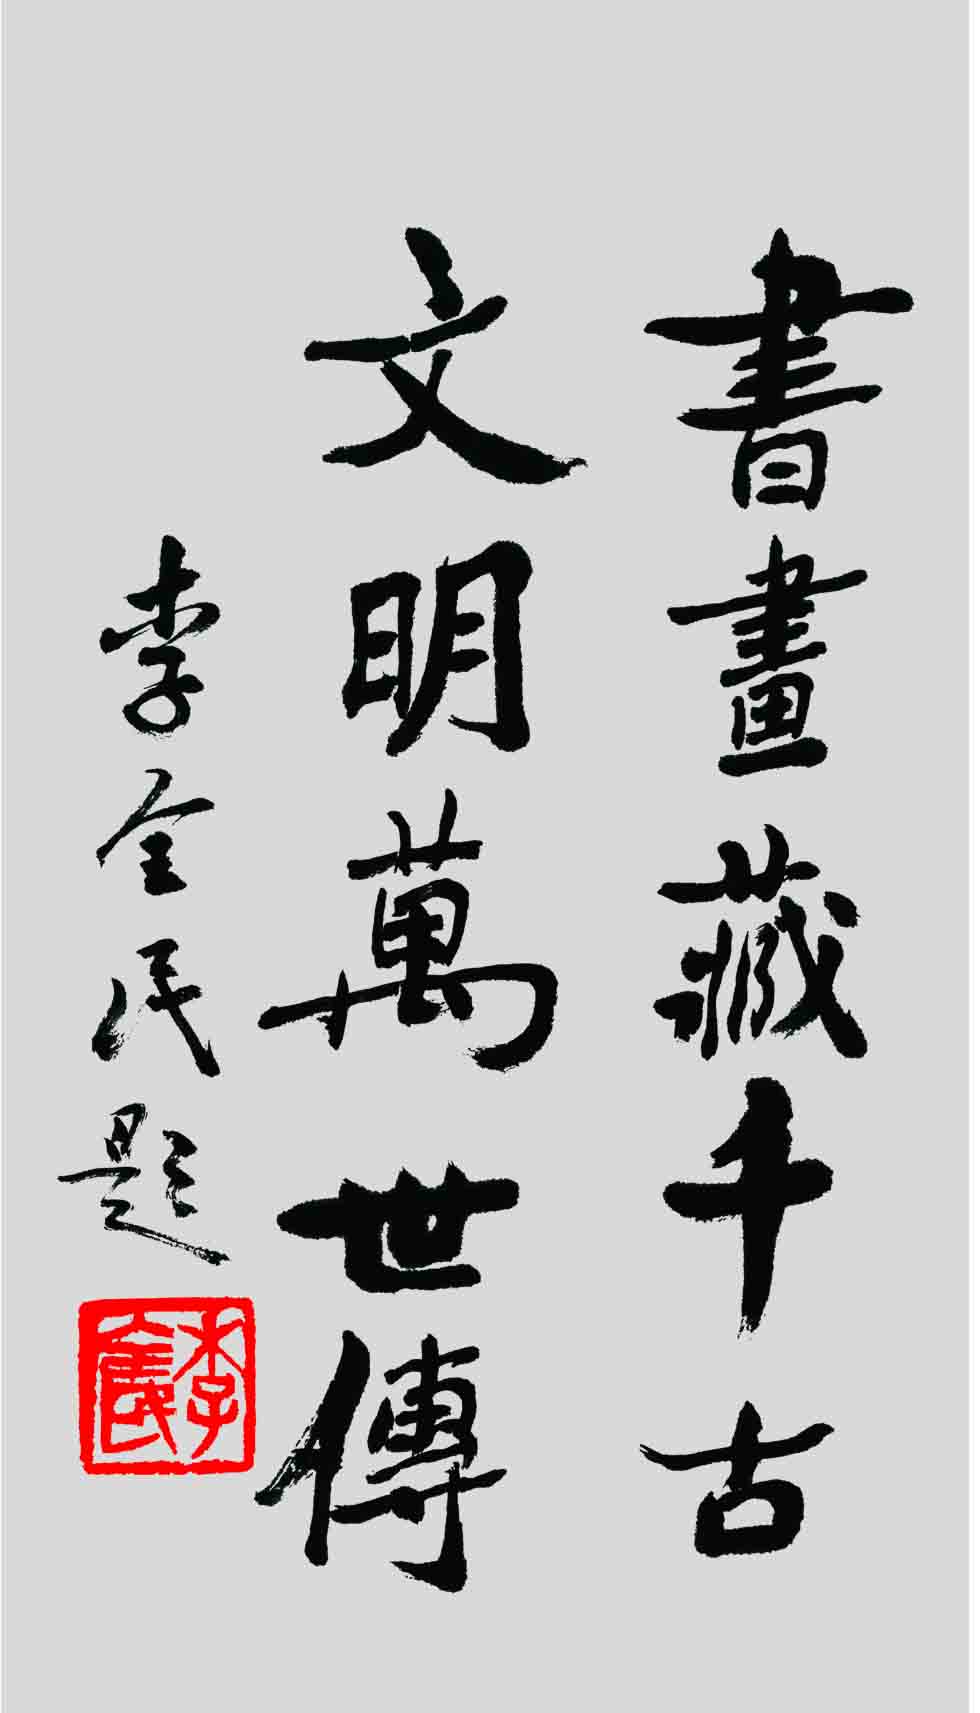 書畫藏千古
文明萬世傳
李全民題
李全民